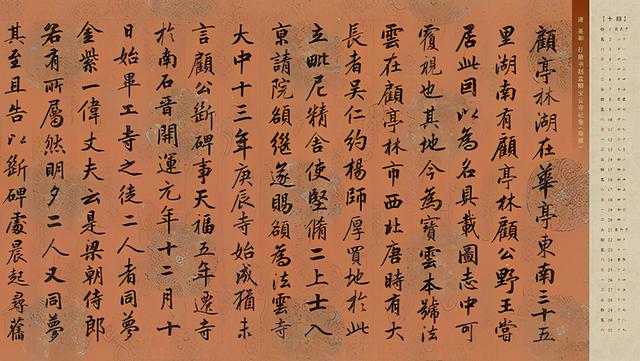 顧亭林湖在華亭東南三十五
里湖南有顧亭林顧公野王嘗
居此因以為名具載圖志中可
覆視也其地今為寶雲本號法
雲在顧亭林市西北唐時有大
長者吴仁約楊師厚買地於此
立毗尼精舍使堅脩二上士入
京請院額繼遂賜額為法雲寺
大中十三年庚辰寺始成猶未
言顧公斷碑事天福五年遷寺
於南石晉開運元年十二月十
日始畢工寺之徒二人者同夢
金紫一偉丈夫云是梁朝侍郎
若有所屬然明夕二人又同夢
其至且告以斷碑處晨起尋舊